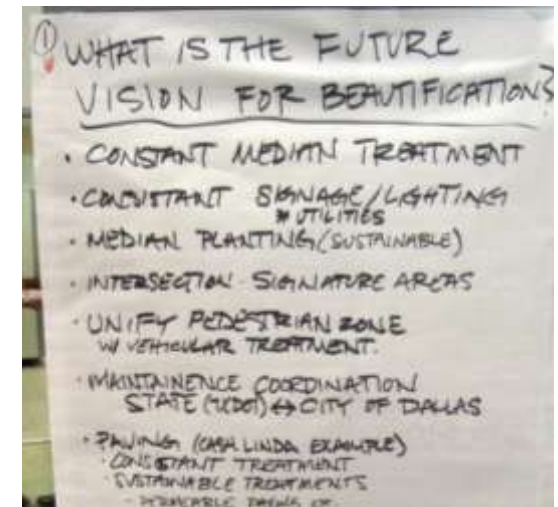 ① WHAT IS THE FUTURE
VISION FOR BEAUTIFICATION?
• CONSTANT MEDIAN TREATMENT
• SIGNAGE/LIGHTING
UTILITIES
• MEDIAN PLANTING (SUSTAINABLE)
• INTERSECTION SIGNATURE AREAS
• UNIFY PEDESTRIAN ZONE
W/ VEHICULAR TREATMENT.
• MAINTAINENCE COORDINATION
STATE (TXDOT) ↔ CITY OF DALLAS
• PAVING (CASA LINDA EXAMPLE)
• CONSISTANT TREATMENT
• SUSTAINABLE TREATMENTS